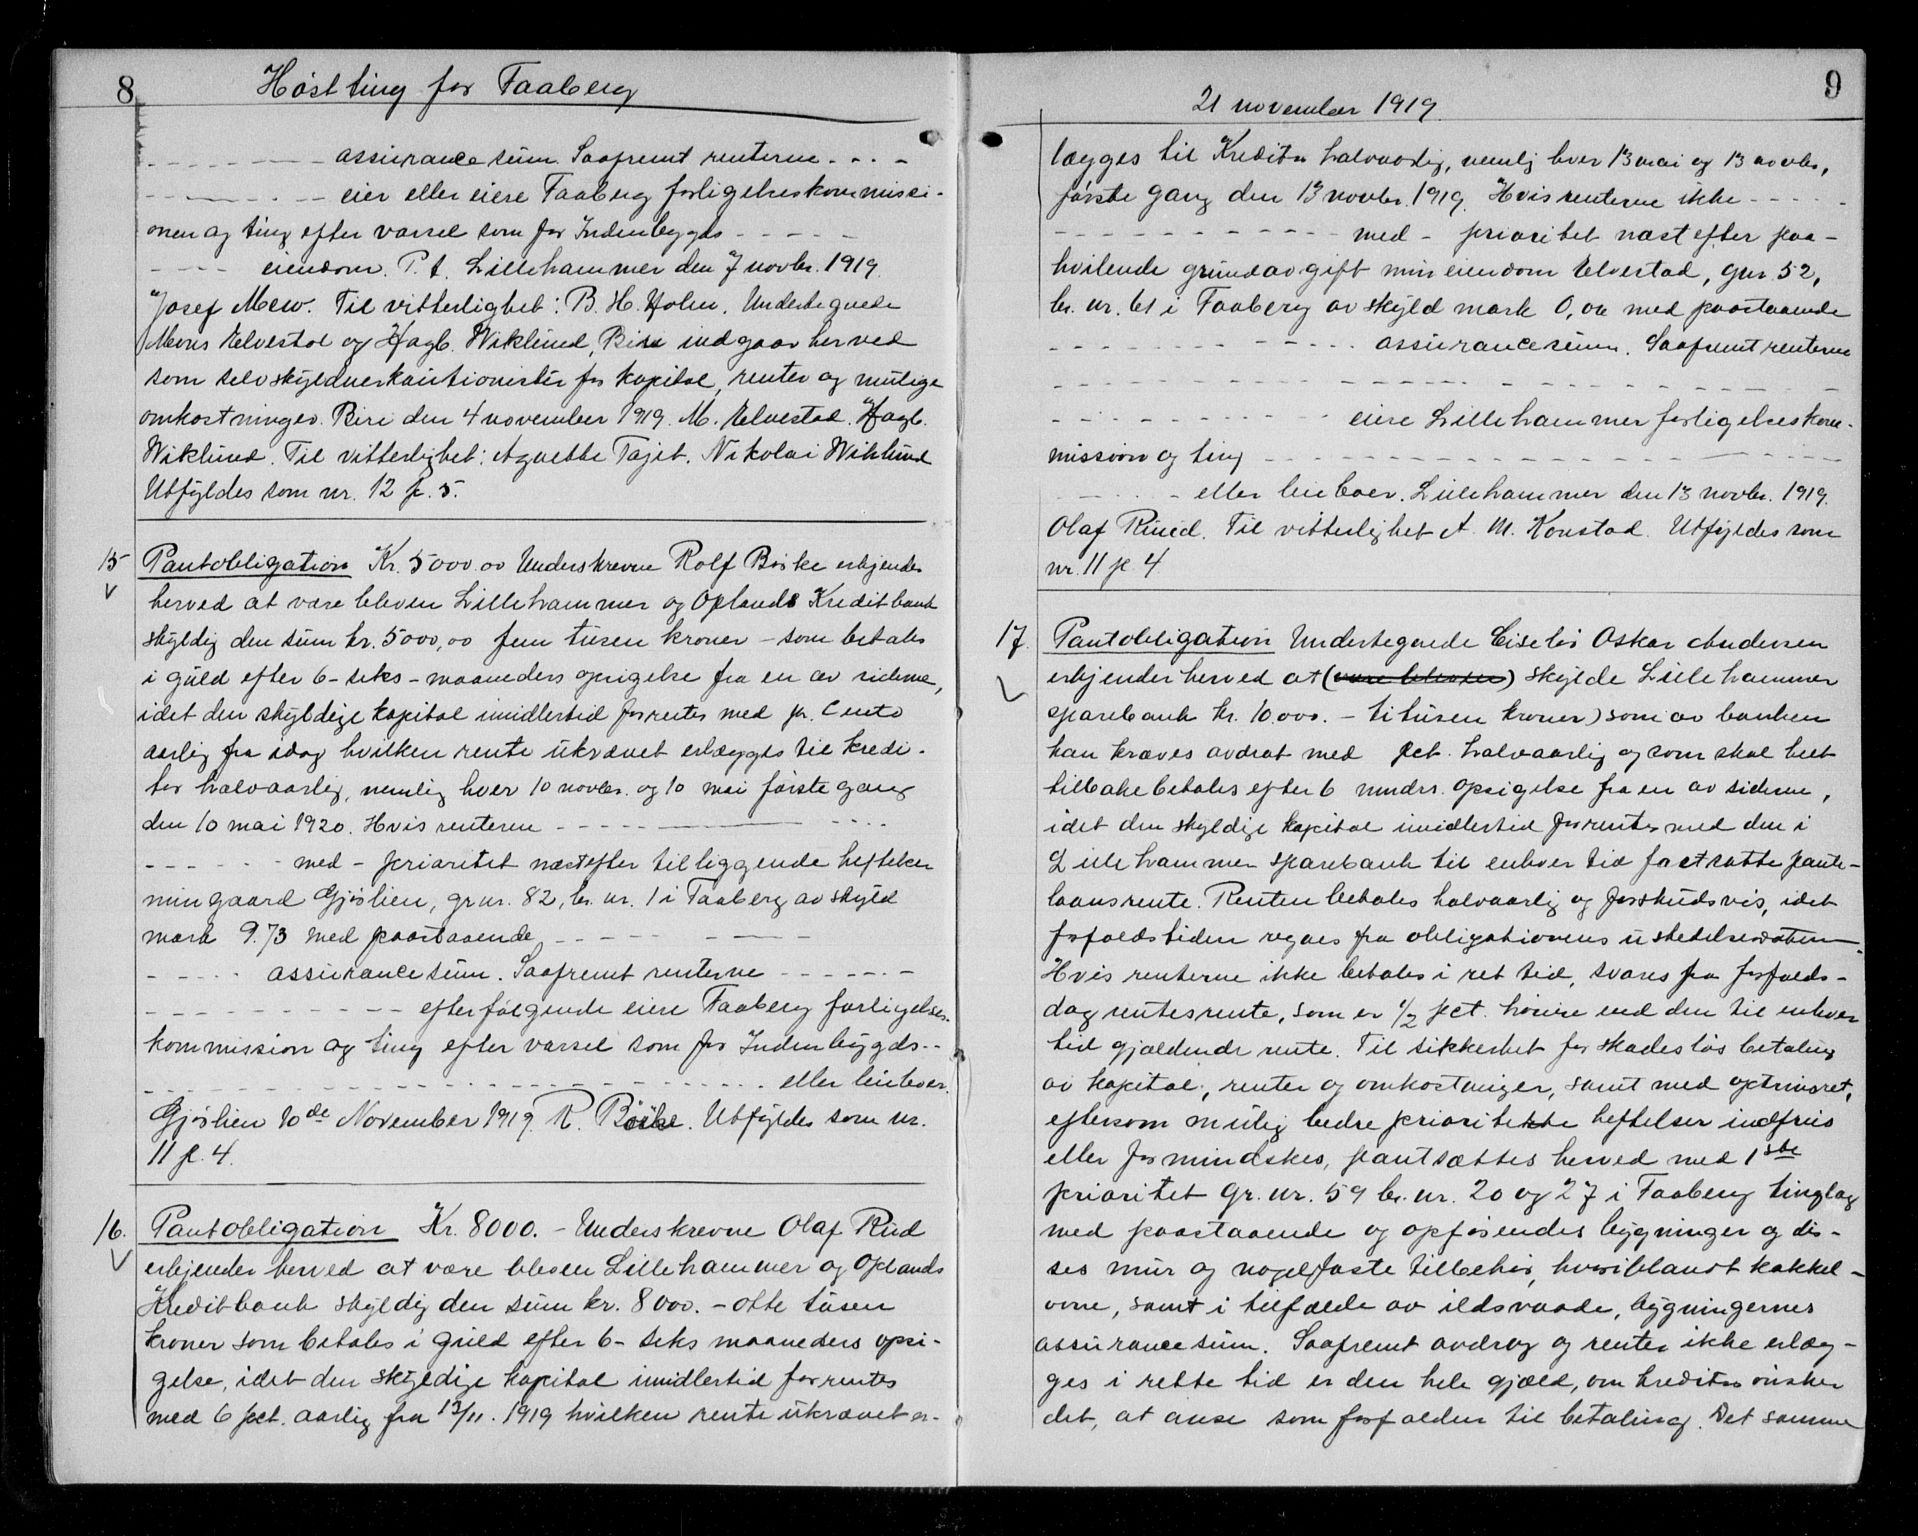 8
Høstting for Faaberg
- - - - - - - assurancesum. Saafremt renterne - - - -
- - - - - - - eier eller eiere Faaberg forligelseskommissi-
onen og ting efter varsel som for Indenbygds - - - - -
- - - - eiendom. P. t. Lillehammer den 7 novbr. 1919.
Josef Mew. Til vitterlighet: B. H. Holm. Undertegnede
Elvestad og Hagb. Wiklund, Biri indgaar herved
som selvskyldnerkautionister for kapital, renter og mulige
omkostninger. Biri den 4 november 1919. M. Elvestad. Hagb.
Wiklund. Til vitterlighet: Agnethe Nikolai Wiklund
Utfyldes som nr. 12 p. 5.
15 Pantobligation Kr. 5000.00 Underskrevne Rolf Böske erkjender
herved at være bleven Lillehammer og Oplands Kreditbank
skyldig den sum kr. 5000,00 fem tusen kroner - som betales
i guld efter 6 - seks - maaneders opsigelse fra en av siderne,
idet den skyldige kapital imidlertid forrentes med pr. Cento
aarlig fra idag hvilken rente ukrævet erlægges til kredi-
tor halvaarlig, nemlig hver 10 novbr. og 10 mai første gang
den 10 mai 1920. Hvis renterne - - - - - - - -
- - - - - - med - prioritet næstefter tilliggende heftelser
min gaard Gjøslien, gr. nr. 82, br. nr. 1 i Faaberg av skyld
mark 9.73 med paastaaende - - - - - - - -
- - - - - assurancesum. Saafremt renterne - - - - - - -
- - - - - - - - - - efterfølgende eiere Faaberg forligelses-
kommission og ting efter varsel som for Indenbygds - -
- - - - - - - - - - - - - - - - - - - - eller leieboer.
Gjøslien 10de November 1919. R. Böske. Utfyldes som nr.
11 p. 4.
16. Pantobligation Kr. 8000. - Underskrevne Olaf Ruud
erkjender herved at være bleven Lillehammer og Oplands
Kreditbank skyldig den sum kr. 8000. - otte tusen
kroner som betales i guld efter 6 - seks maaneders opsi-
gelse, idet den skyldige kapital imidlertid forrentes
med 6 pct. aarlig fra 13/11. 1919 hvilken rente ukrævet er-
9
21 november 1919.
lægges til Kreditor halvaarlig, nemlig hver 13 mai og 13 novbr,
første gang den 13 novbr. 1919. Hvis renterne ikke - - - - -
- - - - - - - - - - - - - med - prioritet næst efter paa-
hvilende grundavgift min eiendom Elvestad, gnr. 52,
br. nr. 61 i Faaberg av skyld mark 0,02 med paastaaende
- - - - - - - - - - - - - assurancesum. Saafremt renterne
- - - - - - - - - - - - - - - - - - - - - -
- - - - - - - - - - - - eiere Lillehammer forligelseskom-
mission og ting - - - - - - - - - - - - - - - - - -
- - - - - eller leieboer. Lillehammer den 13 novbr. 1919.
Olaf Ruud. Til vitterlighet A. M. Konstad. Utfyldes som
nr. 11 p. 4.
17. Pantobligation Undertegnede Ciselør Oskar Andersen
erkjender herved at (være bleven) skylde Lillehammer
sparebank kr. 10.000. - titusen kroner) som av banken
kan kræves avdrat med pct. halvaarlig og som skal helt
tilbakebetales efter 6 mndrs. opsigelse fra en av siderne,
idet den skyldige kapital imidlertid forrentes med den i
Lillehammer sparebank til enhver tid fastsatte pante-
laansrente. Renten betales halvaarlig og forskudsvis, idet
forfaldstiden regnes fra obligationens utstedelsesdatum.
Hvis renterne ikke betales i ret tid, svares fra forfalds-
dag rentesrente, som er 1/2 pct. høiere end den til enhver
tid gjældende rente. Til sikkerhet for skadesløs betaling
av kapital, renter og omkostninger, samt med optrinsret,
eftersom mulig bedre prioriterte heftelser indfries
eller formindskes, pantsættes herved med 1ste
prioritet gr. nr. 59 br. nr. 20 og 27 i Faaberg tinglag
med paastaaende og opførendes bygninger og dis-
ses mur og nagelfaste tilbehør, hvoriblandt kakkel-
ovne, samt i tilfælde av ildsvaade, bygningernes
assurancesum. Saafremt avdrag og renter ikke erlæg-
ges i rette tid er den hele gjæld, om kreditor ønsker
det, at anse som forfalden til betaling. Det samme